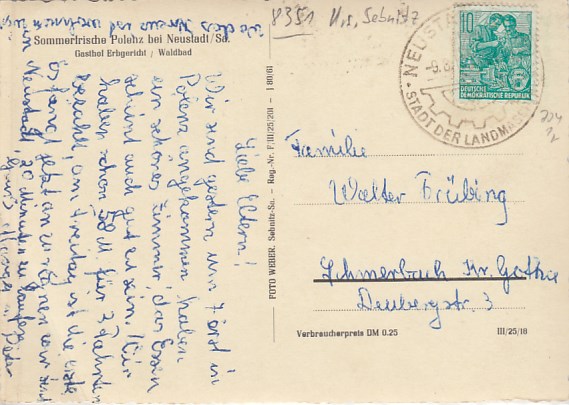 8351 Kr. Sebnitz
Sommerfrische Polenz bei Neustadt/Sa.
Gasthof Erbgericht / Waldbad
Liebe Eltern!
Wir sind gestern um 7 erst in
Polenz angekommen, haben
ein schönes Zimmer, das Essen
scheint auch gut zu sein. Wir
haben schon 50 M. für 3 Fahrten
bezahlt, am Freitag ist die erste
es fängt jetzt an zu
in Neustadt 20 Minuten zu laufen
FOTO WEBER, Sebnitz-Sa. - Rag.-Nr. F/III/25/201 - I 80/61
NEUSTADT
STADT DER LANDMASCH
10
DEUTSCHE
DEMOKRATISCHE REPUBLIK
Familie
Walter Frübing
Schmerbach Kr. Gotha
Deubergstr. 3
Verbraucherpreis DM 0.25
III/25/18